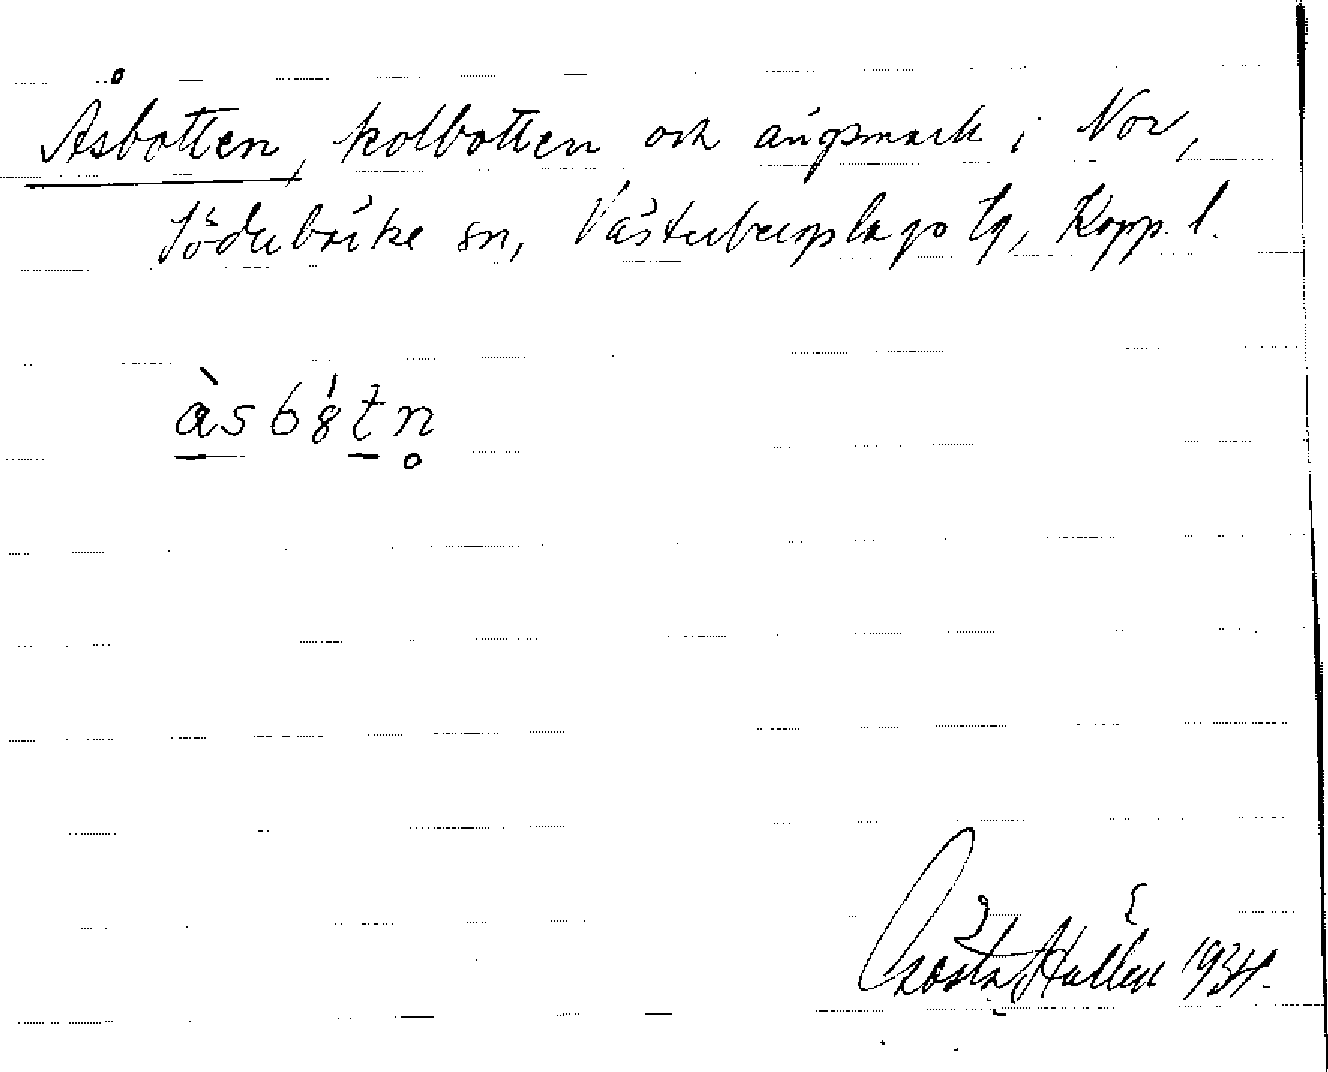 Åsbotten, kolbotten och ängsmark i Nor,
Söderbärke sn, Västerbergslags tg, Kopp. l.
àsb8́tn̥
Gösta Hallén 1934.